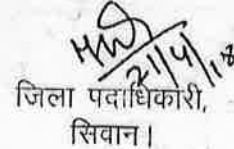 21/4/18
जिला पदाधिकारी,
सिवान।